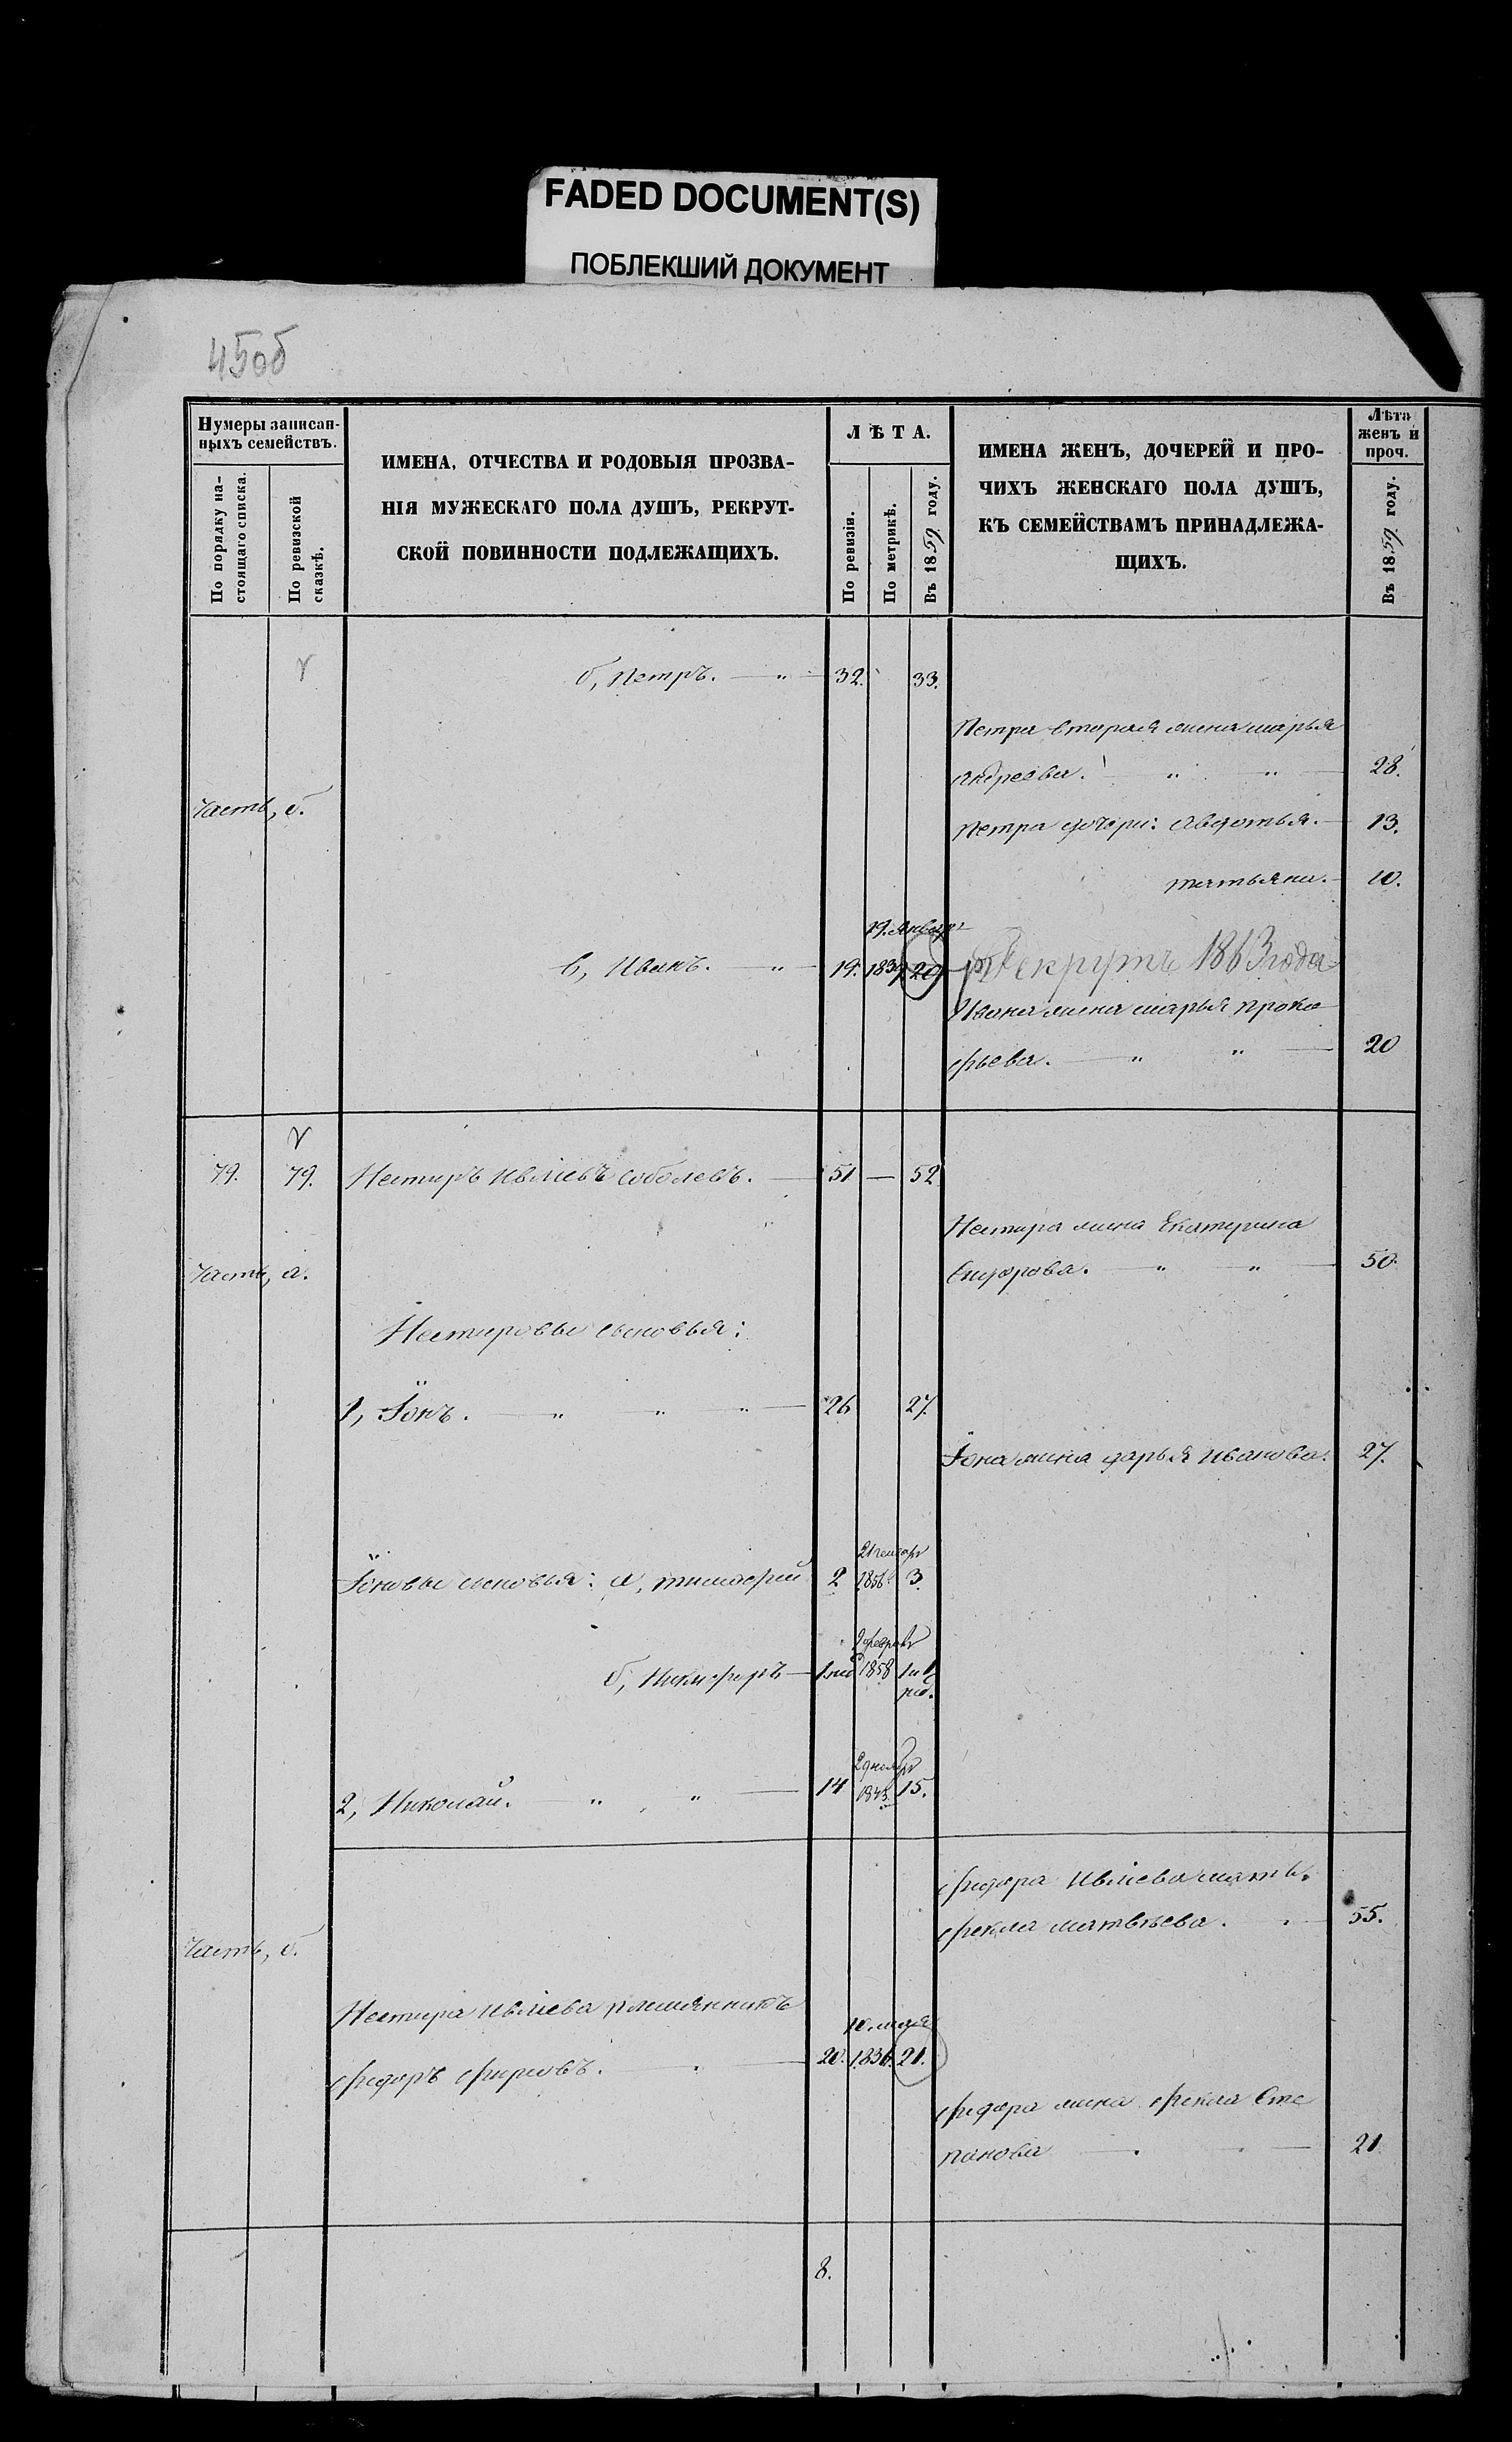 FADED DOCUMENT(S)
ПОБЛЕКШИЙ ДОКУМЕНТ
45об
Нумеры записан-
ныхъ семействъ.
По порядку на-
стоящаго списка.
По ревизской
сказкѣ.
ИМЕНА, ОТЧЕСТВА И РОДОВЫЯ ПРОЗВА-
НІЯ МУЖЕСКАГО ПОЛА ДУШЪ, РЕКРУТ-
СКОЙ ПОВИННОСТИ ПОДЛЕЖАЩИХЪ.
ЛѢТА.
По ревизіи.
По метрикѣ.
Въ 1859 году.
ИМЕНА ЖЕНЪ, ДОЧЕРЕЙ И ПРО-
ЧИХЪ ЖЕНСКАГО ПОЛА ДУШЪ,
КЪ СЕМЕЙСТВАМЪ ПРИНАДЛЕЖА-
ЩИХЪ.
Лѣта
женъ и
проч.
Въ 1859 году.
б, Петръ. — " — 32. 33.
Петра вторая жена марья
андреева. " " — 28.
Часть, б.
Петра дочери: Авдотья. — 13.
татьяна. — 10.
19. январ
в, Иванъ. — " — 19. 1839 20 Рекрутъ 1863 года
Ивана жена марья проко
фьева. — " " — 20
79. 79. Нестиръ ивлiевъ соболевъ. — 51 — 52
Нестира жена Екатерина
Сидорова. — " " — 50.
Часть, а.
Нестировы сыновья:
1, Іонъ. — " " " — 26 27.
Іона жена дарья иванова. 27.
Іоновы сыновья: а, тимофей 2 1856 3.
2 феврал
б, Никифоръ — 1858
29 ноябр
2, Николай. — " " — 14 1843. 15.
федора ивлiева мать
фекла матвѣева. — 55.
Часть, б.
Нестира ивлiева племянникъ
10. мая
федоръ фирсовъ. — 20. 1836. 21.
федора жена фекла Сте
панова — 21
8.